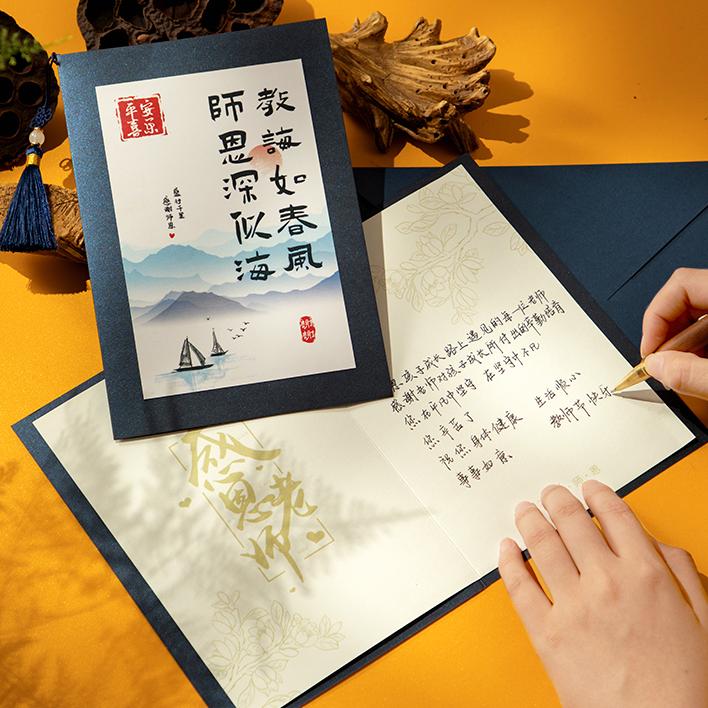 平安
喜乐
教誨如春風
師恩深似海
感谢师恩
感恩老师
孩子成长路上遇见的每一位老师
感谢老师对孩子成长所付出的辛勤培育
您在平凡中坚守 在坚守中不凡
您辛苦了
祝您身体健康 生活顺心
事事如意 教师节快乐